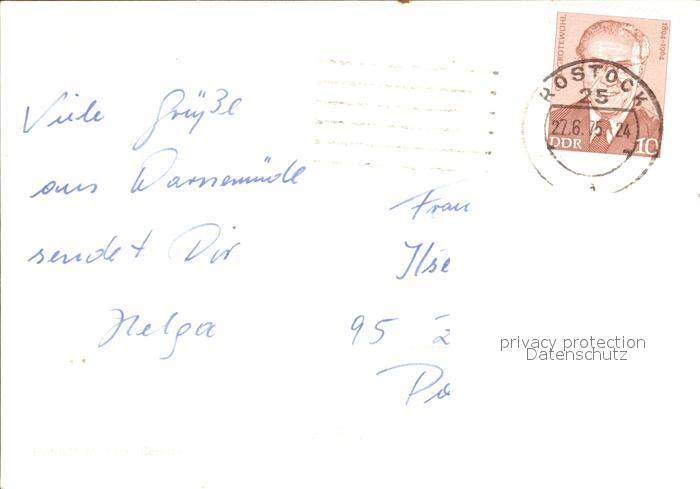 GROTEWOHL
1894-1964
ROSTOCK
25
27.6.75 24
DDR 10
a
Viele Grüße
aus Warnemünde
sendet Dir
Helga
Frau
Ilse
95 Z
Po
privacy protection
Datenschutz